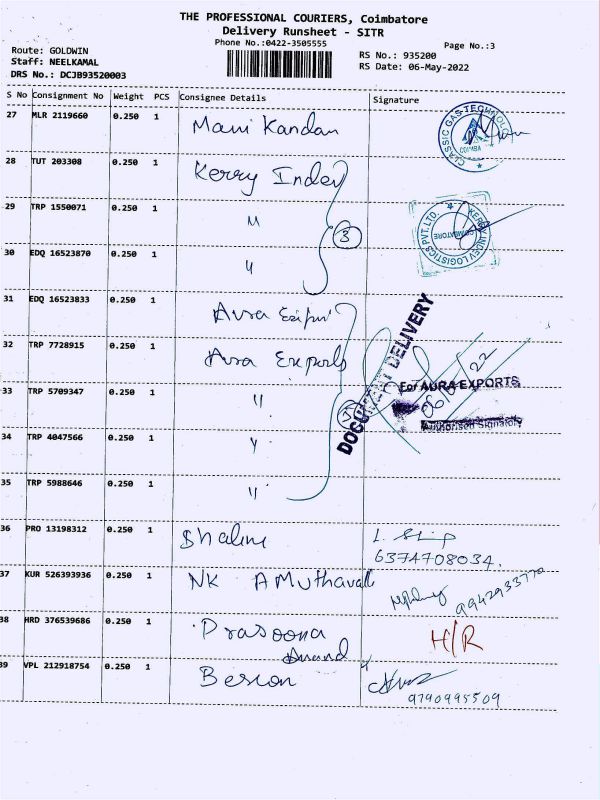 THE PROFESSIONAL COURIERS, Coimbatore
Delivery Runsheet - SITR
Phone No.:0422-3505555
Page No.:3
Route: GOLDWIN
Staff: NEELKAMAL
DRS No.: DCJB93520003
RS No.: 935200
RS Date: 06-May-2022
S No Consignment No Weight PCS Consignee Details Signature
27 MLR 2119660 0.250 1 Mani Kandan
CLASSIC GAS TECHNOLOG
28 TUT 203308 0.250 1 Kerry Indev
29 TRP 1550071 0.250 1 "
3
KERRY INDEV LOGISTICS PVT.LTD.
COIMBATORE
30 EDQ 16523870 0.250 1 "
31 EDQ 16523833 0.250 1 Aura
32 TRP 7728915 0.250 1 Aura Exports
33 TRP 5709347 0.250 1 "
DOCUMENT DELIVERY
For AURA EXPORTS
Authorised Signatory
34 TRP 4047566 0.250 1 "
35 TRP 5988646 0.250 1 "
36 PRO 13198312 0.250 1 Shalini
6374708034.
37 KUR 526393936 0.250 1 NK AMuthavalli
38 HRD 376539686 0.250 1 Prasoona
Anand
H/R
39 VPL 212918754 0.250 1
9790995509